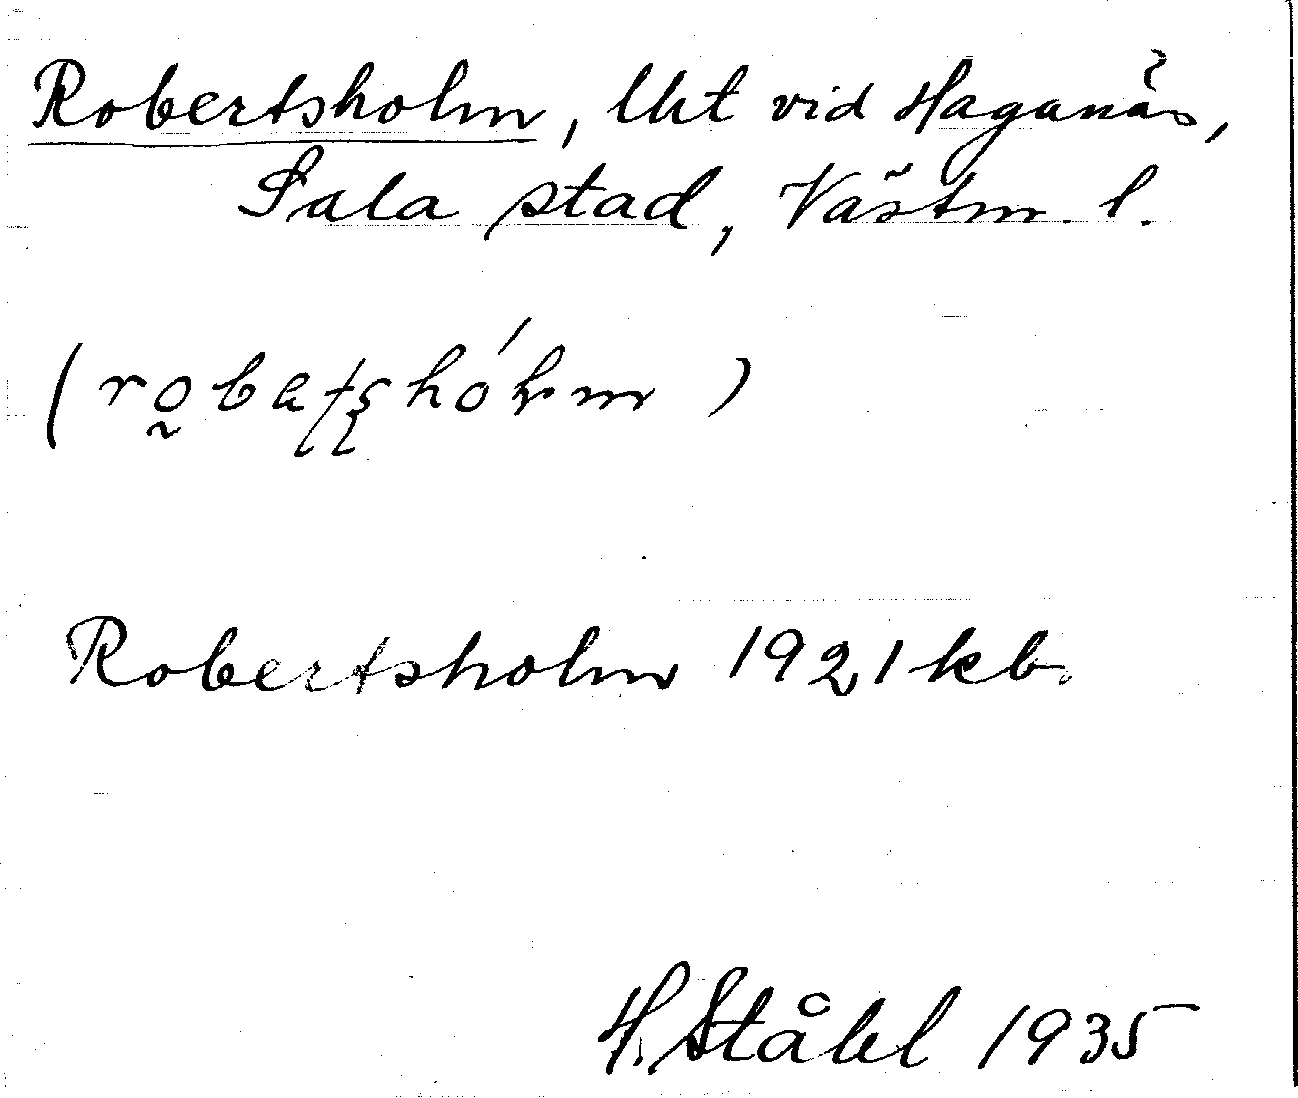 Robertsholm, lht vid Haganäs,
Sala stad, Västm. l.
Robertsholm 1921 kb.
H. Ståhl 1935